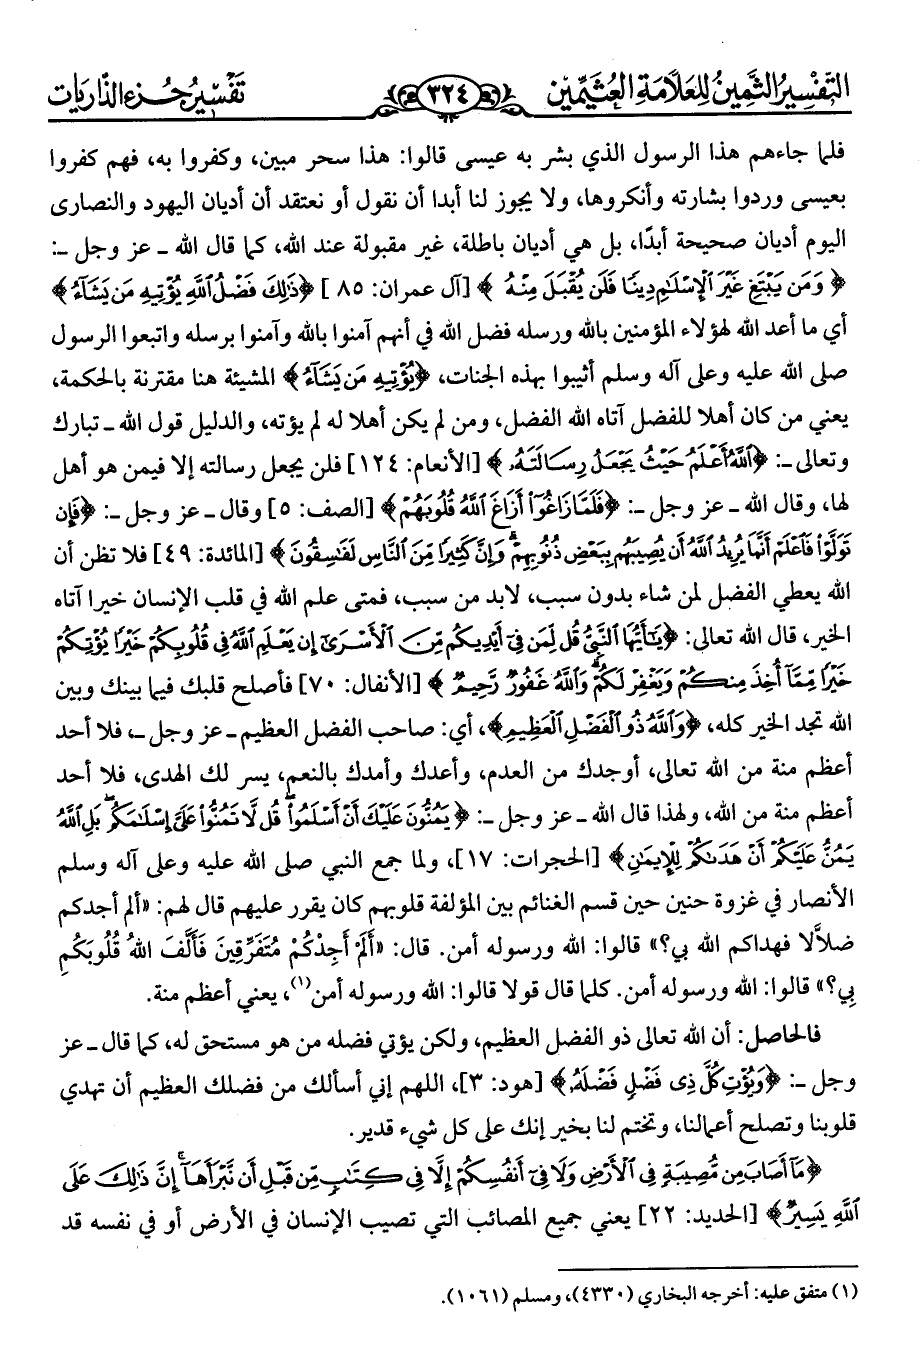 التفسير الثمين للعلامة العثيمين ٣٢٤ تفسير جزء الذاريات
فلما جاءهم هذا الرسول الذي بشر به عيسى قالوا: هذا سحر مبين، وكفروا به، فهم كفروا
بعيسى وردوا بشارته وأنكروها، ولا يجوز لنا أبدا أن نقول أو نعتقد أن أديان اليهود والنصارى
اليوم أديان صحيحة أبدًا، بل هي أديان باطلة، غير مقبولة عند الله، كما قال الله ـ عز وجل ـ:
﴿ وَمَن يَبْتَغِ غَيْرَ ٱلْإِسْلَٰمِ دِينًا فَلَن يُقْبَلَ مِنْهُ ﴾ [آل عمران: ٨٥ ] ﴿ذَٰلِكَ فَضْلُ ٱللَّهِ يُؤْتِيهِ مَن يَشَآءُ﴾
أي ما أعد الله لهؤلاء المؤمنين بالله ورسله فضل الله في أنهم آمنوا بالله وآمنوا برسله واتبعوا الرسول
صلى الله عليه وعلى آله وسلم أثيبوا بهذه الجنات، ﴿يُؤْتِيهِ مَن يَشَآءُ﴾ المشيئة هنا مقترنة بالحكمة،
يعني من كان أهلا للفضل آتاه الله الفضل، ومن لم يكن أهلا له لم يؤته، والدليل قول الله ـ تبارك
وتعالى ـ: ﴿ٱللَّهُ أَعْلَمُ حَيْثُ يَجْعَلُ رِسَالَتَهُۥ ﴾ [الأنعام: ١٢٤] فلن يجعل رسالته إلا فيمن هو أهل
لها، وقال الله ـ عز وجل ـ: ﴿فَلَمَّا زَاغُوٓا۟ أَزَاغَ ٱللَّهُ قُلُوبَهُمْ﴾ [الصف: ٥] وقال ـ عز وجل ـ: ﴿فَإِن
تَوَلَّوْا۟ فَٱعْلَمْ أَنَّمَا يُرِيدُ ٱللَّهُ أَن يُصِيبَهُم بِبَعْضِ ذُنُوبِهِمْ ۗ وَإِنَّ كَثِيرًا مِّنَ ٱلنَّاسِ لَفَٰسِقُونَ ﴾ [المائدة: ٤٩] فلا تظن أن
الله يعطي الفضل لمن شاء بدون سبب، لابد من سبب، فمتى علم الله في قلب الإنسان خيرا آتاه
الخير، قال الله تعالى: ﴿يَٰٓأَيُّهَا ٱلنَّبِىُّ قُل لِّمَن فِىٓ أَيْدِيكُم مِّنَ ٱلْأَسْرَىٰٓ إِن يَعْلَمِ ٱللَّهُ فِى قُلُوبِكُمْ خَيْرًا يُؤْتِكُمْ
خَيْرًا مِّمَّآ أُخِذَ مِنكُمْ وَيَغْفِرْ لَكُمْ ۗ وَٱللَّهُ غَفُورٌ رَّحِيمٌ ﴾ [الأنفال: ٧٠] فأصلح قلبك فيما بينك وبين
الله تجد الخير كله، ﴿وَٱللَّهُ ذُو ٱلْفَضْلِ ٱلْعَظِيمِ﴾، أي: صاحب الفضل العظيم ـ عز وجل ـ، فلا أحد
أعظم منة من الله تعالى، أوجدك من العدم، وأعدك وأمدك بالنعم، يسر لك الهدى، فلا أحد
أعظم منة من الله، ولهذا قال الله ـ عز وجل ـ: ﴿ يَمُنُّونَ عَلَيْكَ أَنْ أَسْلَمُوا۟ ۖ قُل لَّا تَمُنُّوا۟ عَلَىَّ إِسْلَٰمَكُم ۖ بَلِ ٱللَّهُ
يَمُنُّ عَلَيْكُمْ أَنْ هَدَىٰكُمْ لِلْإِيمَٰنِ﴾ [الحجرات: ١٧]، ولما جمع النبي صلى الله عليه وعلى آله وسلم
الأنصار في غزوة حنين حين قسم الغنائم بين المؤلفة قلوبهم كان يقرر عليهم قال لهم: «ألم أجدكم
ضلالًا فهداكم الله بي؟» قالوا: الله ورسوله أمن. قال: «أَلَمْ أَجِدْكُمْ مُتَفَرِّقِينَ فَأَلَّفَ اللهُ قُلُوبَكُمِ
بِي؟» قالوا: الله ورسوله أمن. كلما قال قولا قالوا: الله ورسوله أمن(١)، يعني أعظم منة.
فالحاصل: أن الله تعالى ذو الفضل العظيم، ولكن يؤتي فضله من هو مستحق له، كما قال ـ عز
وجل ـ: ﴿وَيُؤْتِ كُلَّ ذِى فَضْلٍ فَضْلَهُۥ ﴾ [هود: ٣]، اللهم إني أسألك من فضلك العظيم أن تهدي
قلوبنا وتصلح أعمالنا، وتختم لنا بخير إنك على كل شيء قدير.
﴿مَآ أَصَابَ مِن مُّصِيبَةٍ فِى ٱلْأَرْضِ وَلَا فِىٓ أَنفُسِكُمْ إِلَّا فِى كِتَٰبٍ مِّن قَبْلِ أَن نَّبْرَأَهَآ ۚ إِنَّ ذَٰلِكَ عَلَى
ٱللَّهِ يَسِيرٌ﴾ [الحديد: ٢٢] يعني جميع المصائب التي تصيب الإنسان في الأرض أو في نفسه قد
(١) متفق عليه: أخرجه البخاري (٤٣٣٠)، ومسلم (١٠٦١).